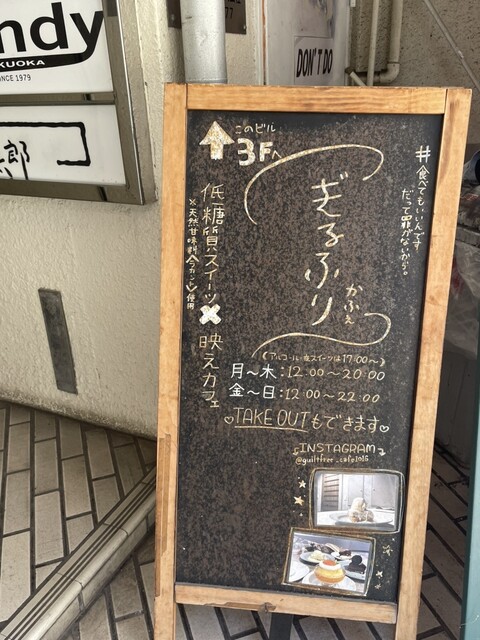 ndy
KUOKA
SINCE 1979
郎
DON'T DO
このビル
3Fへ
#食べてもいいんです
だって罪がないから。
ぎるふり
かふぇ
低糖質スイーツ×映えカフェ
※天然甘味料(ラカント)使用
(アルコール・夜スイーツは17:00〜)
月〜木:12:00〜20:00
金〜日:12:00〜22:00
♡TAKE OUTもできます♡
INSTAGRAM
@guiltfree_cafe1015